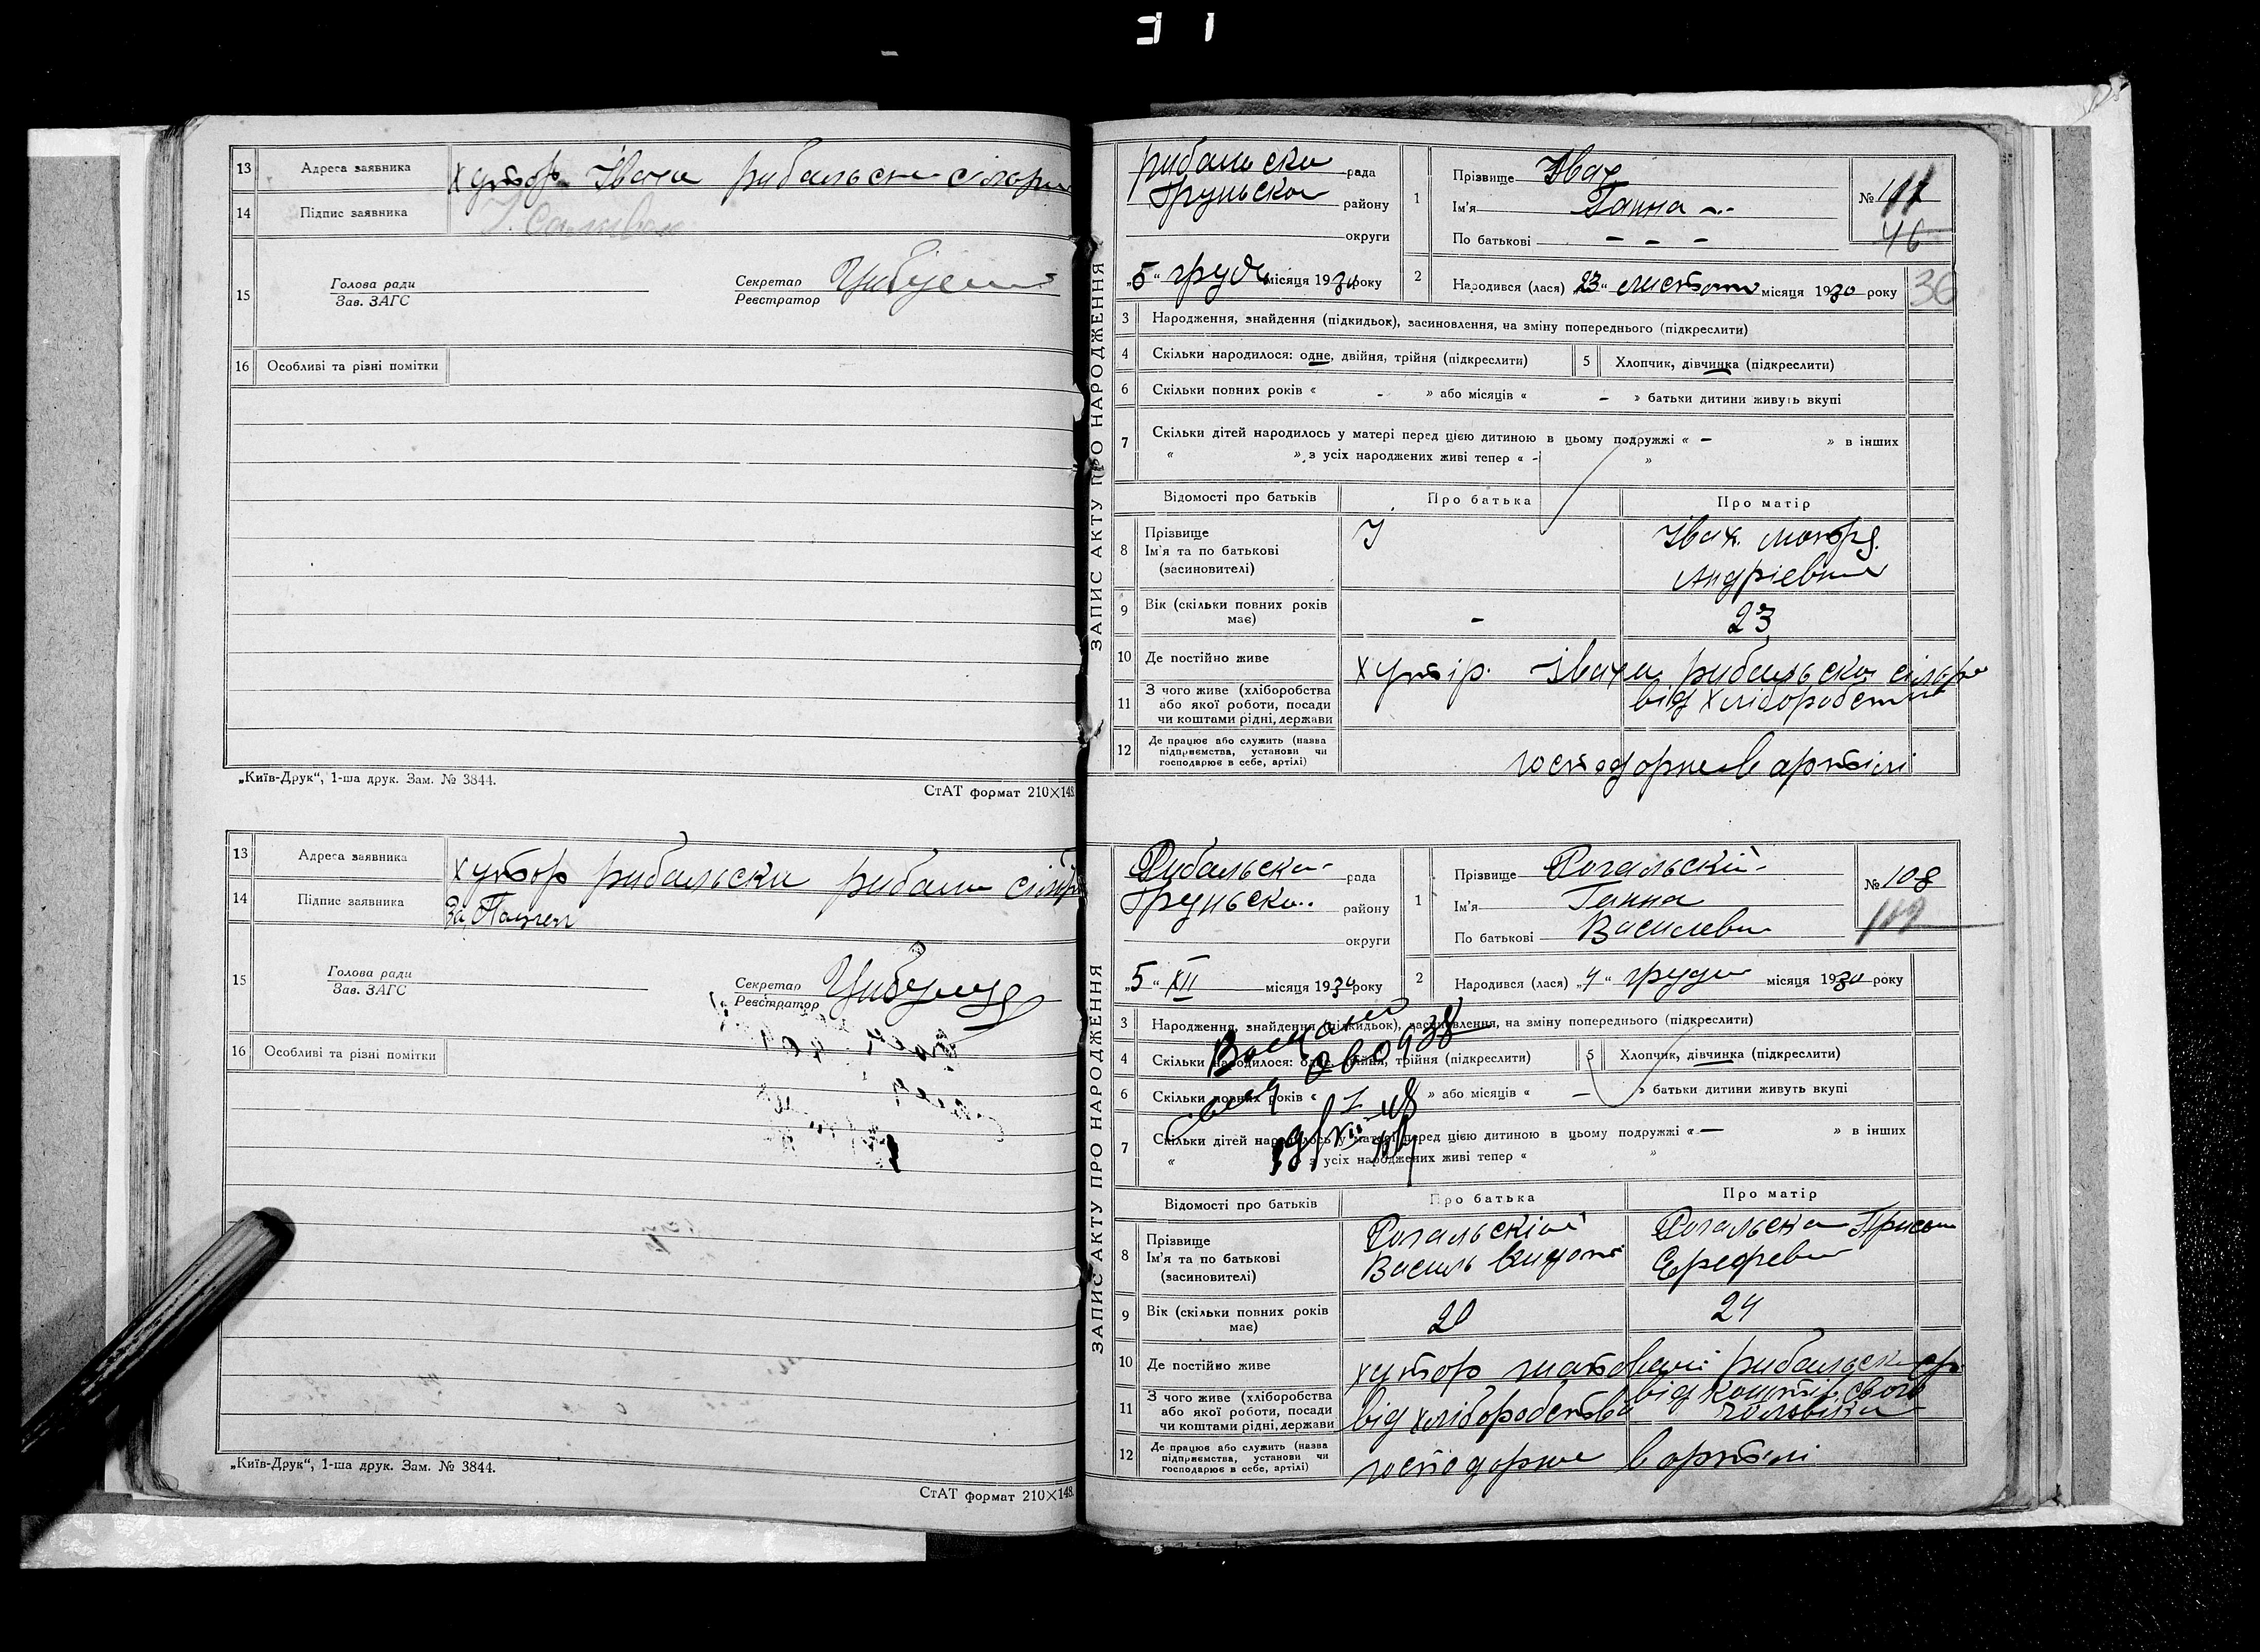 13 Адреса заявника хутор Івахи рибальськ
14 Підпис заявника
15 Голова ради Секретар
Зав. ЗАГС Реєстратор
16 Особливі та різні помітки
„Київ-Друк“, 1-ша друк. Зам. № 3844.
СтАТ формат 210×148.
13 Адреса заявника хутор рибальски
14 Підпис заявника За
15 Голова ради Секретар Цибуля
Зав. ЗАГС Реєстратор
16 Особливі та різні помітки
„Київ-Друк“, 1-ша друк. Зам. № 3844.
СтАТ формат 210×148.
ЗАПИС АКТУ ПРО НАРОДЖЕННЯ
рибальска рада
Груньска району
округи
„5“ грудь місяця 1930 року
1 Прізвище Івах
Ім'я Ганна
По батькові - - -
№
46
2 Народився (лася) „23“ листоп місяця 1930 року
36
3 Народження, знайдення (підкидьок), засиновлення, на зміну попереднього (підкреслити)
4 Скільки народилося: одне, двійня, трійня (підкреслити) 5 Хлопчик, дівчинка (підкреслити)
6 Скільки повних років « - » або місяців « - » батьки дитини живуть вкупі
7 Скільки дітей народилось у матері перед цією дитиною в цьому подружжі « - » в інших
« » з усіх народжених живі тепер « - »
Відомості про батьків Про батька Про матір
8 Прізвище
Ім'я та по батькові
(засиновителі)
Івах
Андріевна
9 Вік (скільки повних років має) - 23
10 Де постійно живе хутір Івахи рибальска
11 З чого живе (хліборобства
або якої роботи, посади
чи коштами рідні, держави
від хліборобства
12 Де працює або служить (назва
підприємства, установи чи
господарює в себе, артілі)
господарює в артілі
ЗАПИС АКТУ ПРО НАРОДЖЕННЯ
Рибальска рада
Груньска району
округи
„5“ XII місяця 1930 року
1 Прізвище Рогальскій
Ім'я Ганна
По батькові Василевна
№ 108
2 Народився (лася) „4“ грудня місяця 1930 року
3 Народження, знайдення (підкидьок), засиновлення, на зміну попереднього (підкреслити)
4 Скільки народилося: одне, двійня, трійня (підкреслити) 5 Хлопчик, дівчинка (підкреслити)
6 Скільки повних років « 1 » або місяців « - » батьки дитини живуть вкупі
7 Скільки дітей народилось у матері перед цією дитиною в цьому подружжі « - » в інших
« » з усіх народжених живі тепер « »
Відомості про батьків Про батька Про матір
8 Прізвище
Ім'я та по батькові
(засиновителі)
Рогальскій
Василь
Рогальска
9 Вік (скільки повних років має) 20 24
10 Де постійно живе хутор рибальска
11 З чого живе (хліборобства
або якої роботи, посади
чи коштами рідні, держави
від хліборобства
від коштів свого
чоловіка
12 Де працює або служить (назва
підприємства, установи чи
господарює в себе, артілі)
господарює в артілі